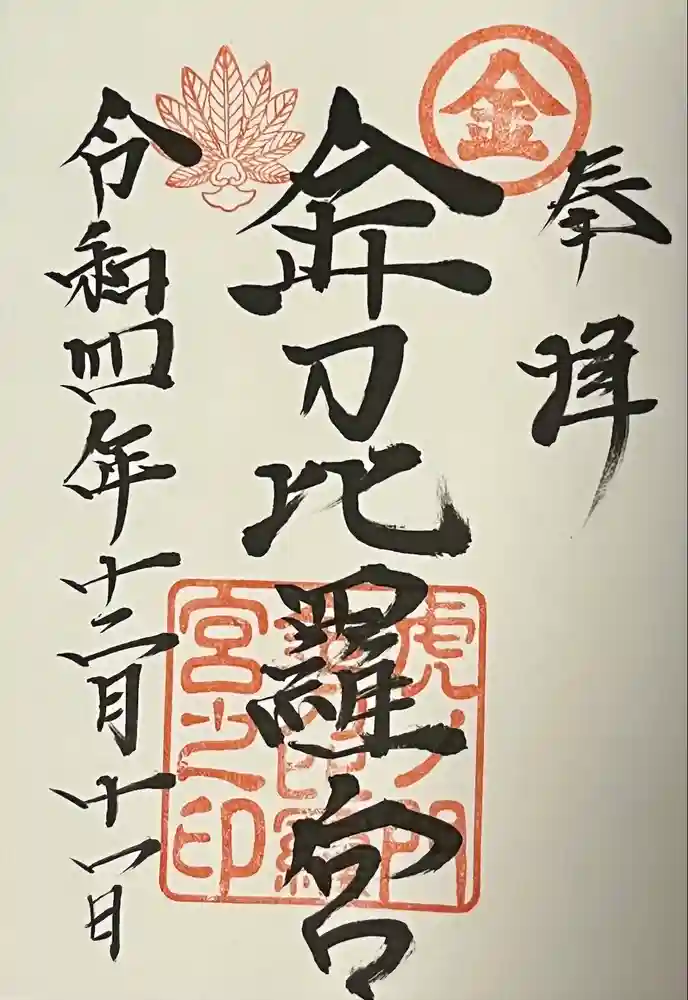 奉拝
金
金刀比羅宮
虎ノ門
金刀比羅
宮之印
令和四年十二月十一日